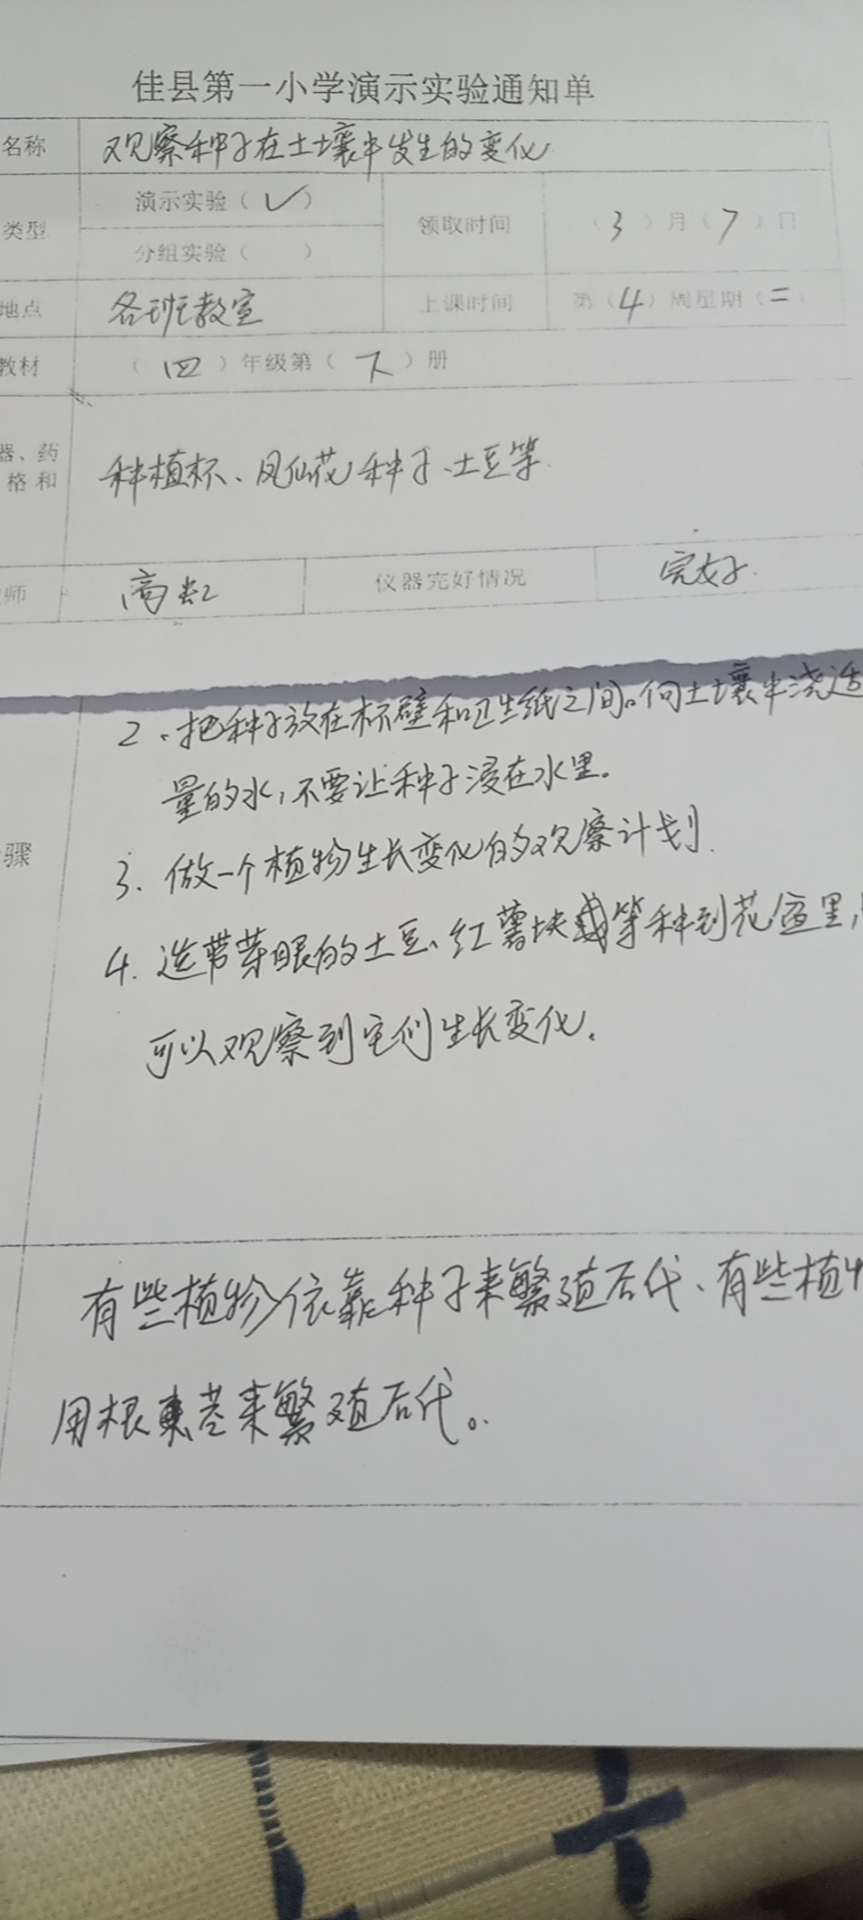 佳县第一小学演示实验通知单
名称 观察种子在土壤中发生的变化
类型 演示实验（✓） 领取时间 （3）月（7）日
分组实验（ ）
地点 各班教室 上课时间 第（4）周星期（二）
教材 （四）年级第（下）册
器、药
格和
种植杯、凤仙花种子、土豆等.
师 高 仪器完好情况 完好.
2、把种子放在杯壁和卫生纸之间。向土壤中浇适
量的水，不要让种子浸在水里。
骤
3. 做一个植物生长变化的观察计划.
4. 选带芽眼的土豆、红薯块或等种到花盆里，
可以观察到它们生长变化.
有些植物依靠种子来繁殖后代、有些植
用根 茎来繁殖后代。